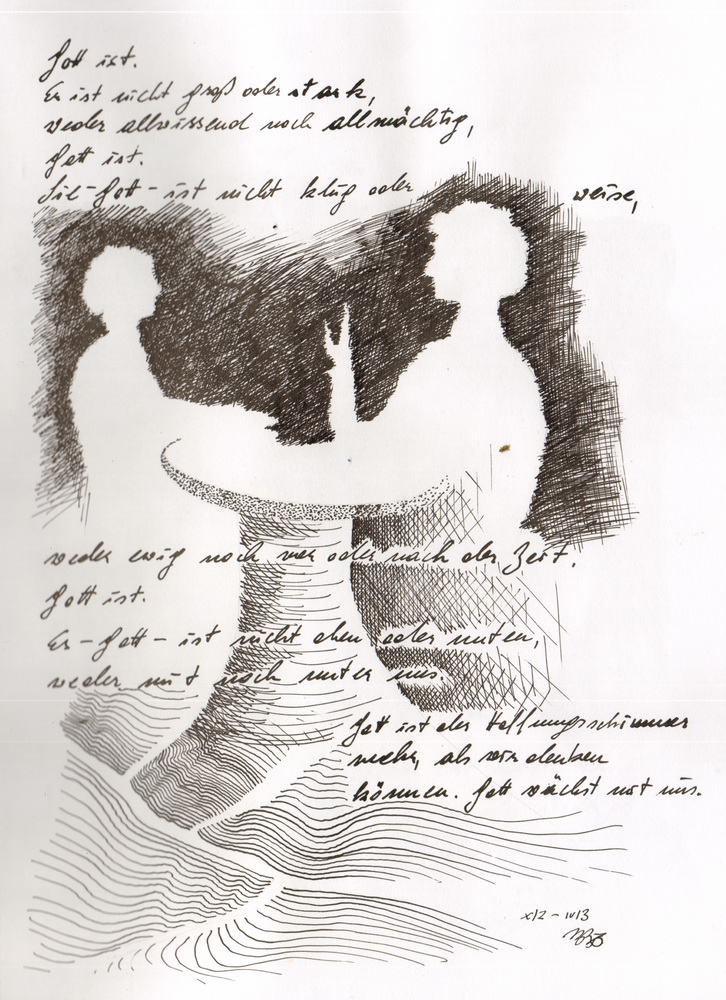 Gott ist.
Er ist nicht groß oder stark,
weder allwissend noch allmächtig,
Gott ist.
Sie-Gott- ist nicht klug oder weise,
weder ewig noch vor oder nach der Zeit.
Gott ist.
Er-Gott- ist nicht oben oder unten,
weder mit noch unter uns.
Gott ist der Hoffnungsschimmer
mehr, als wir denken
können. Gott wächst mit uns.
x12 - IV13